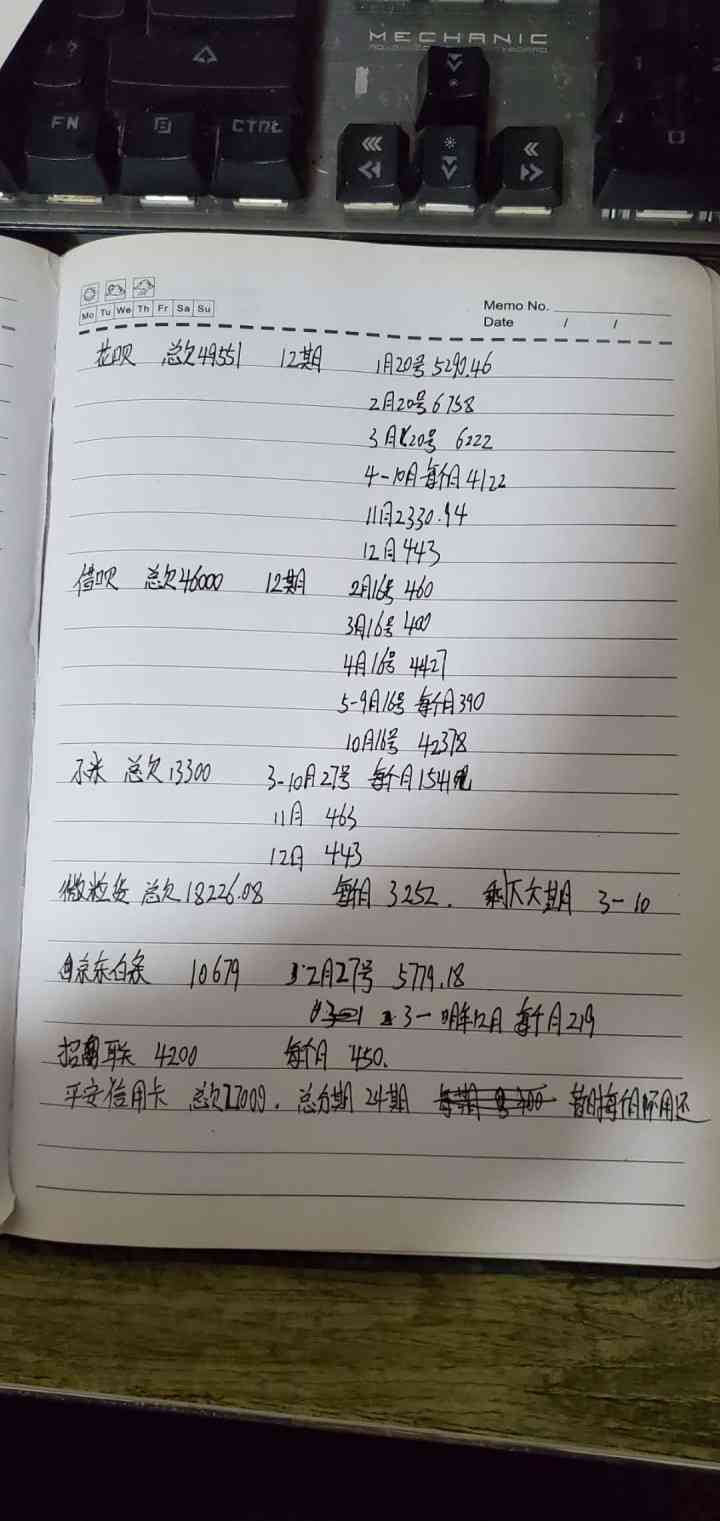 MECHANIC
FN
CTRL
Mo Tu We Th Fr Sa Su
Memo No.
Date / /
花呗 总欠49551 12期 1月20号 5290.46
2月20号 6758
3月20号 6222
4-10月每个月4122
11月2330.94
12月443
借呗 总欠46000 12期 2月16号 460
3月16号 400
4月16号 4427
5-9月16号 每个月390
10月16号 42378
小米 总欠13300 3-10月27号 每个月1541元
11月 463
12月 443
微粒贷 总欠18226.08 每个月 3252. 剩下六期 3-10
京东白条 10679 2月27号 5779.18
3-明年12月 每个月219
招商联 4200 每个月 450.
平安信用卡 总欠27009. 总分期 24期 暂时每个月不用还